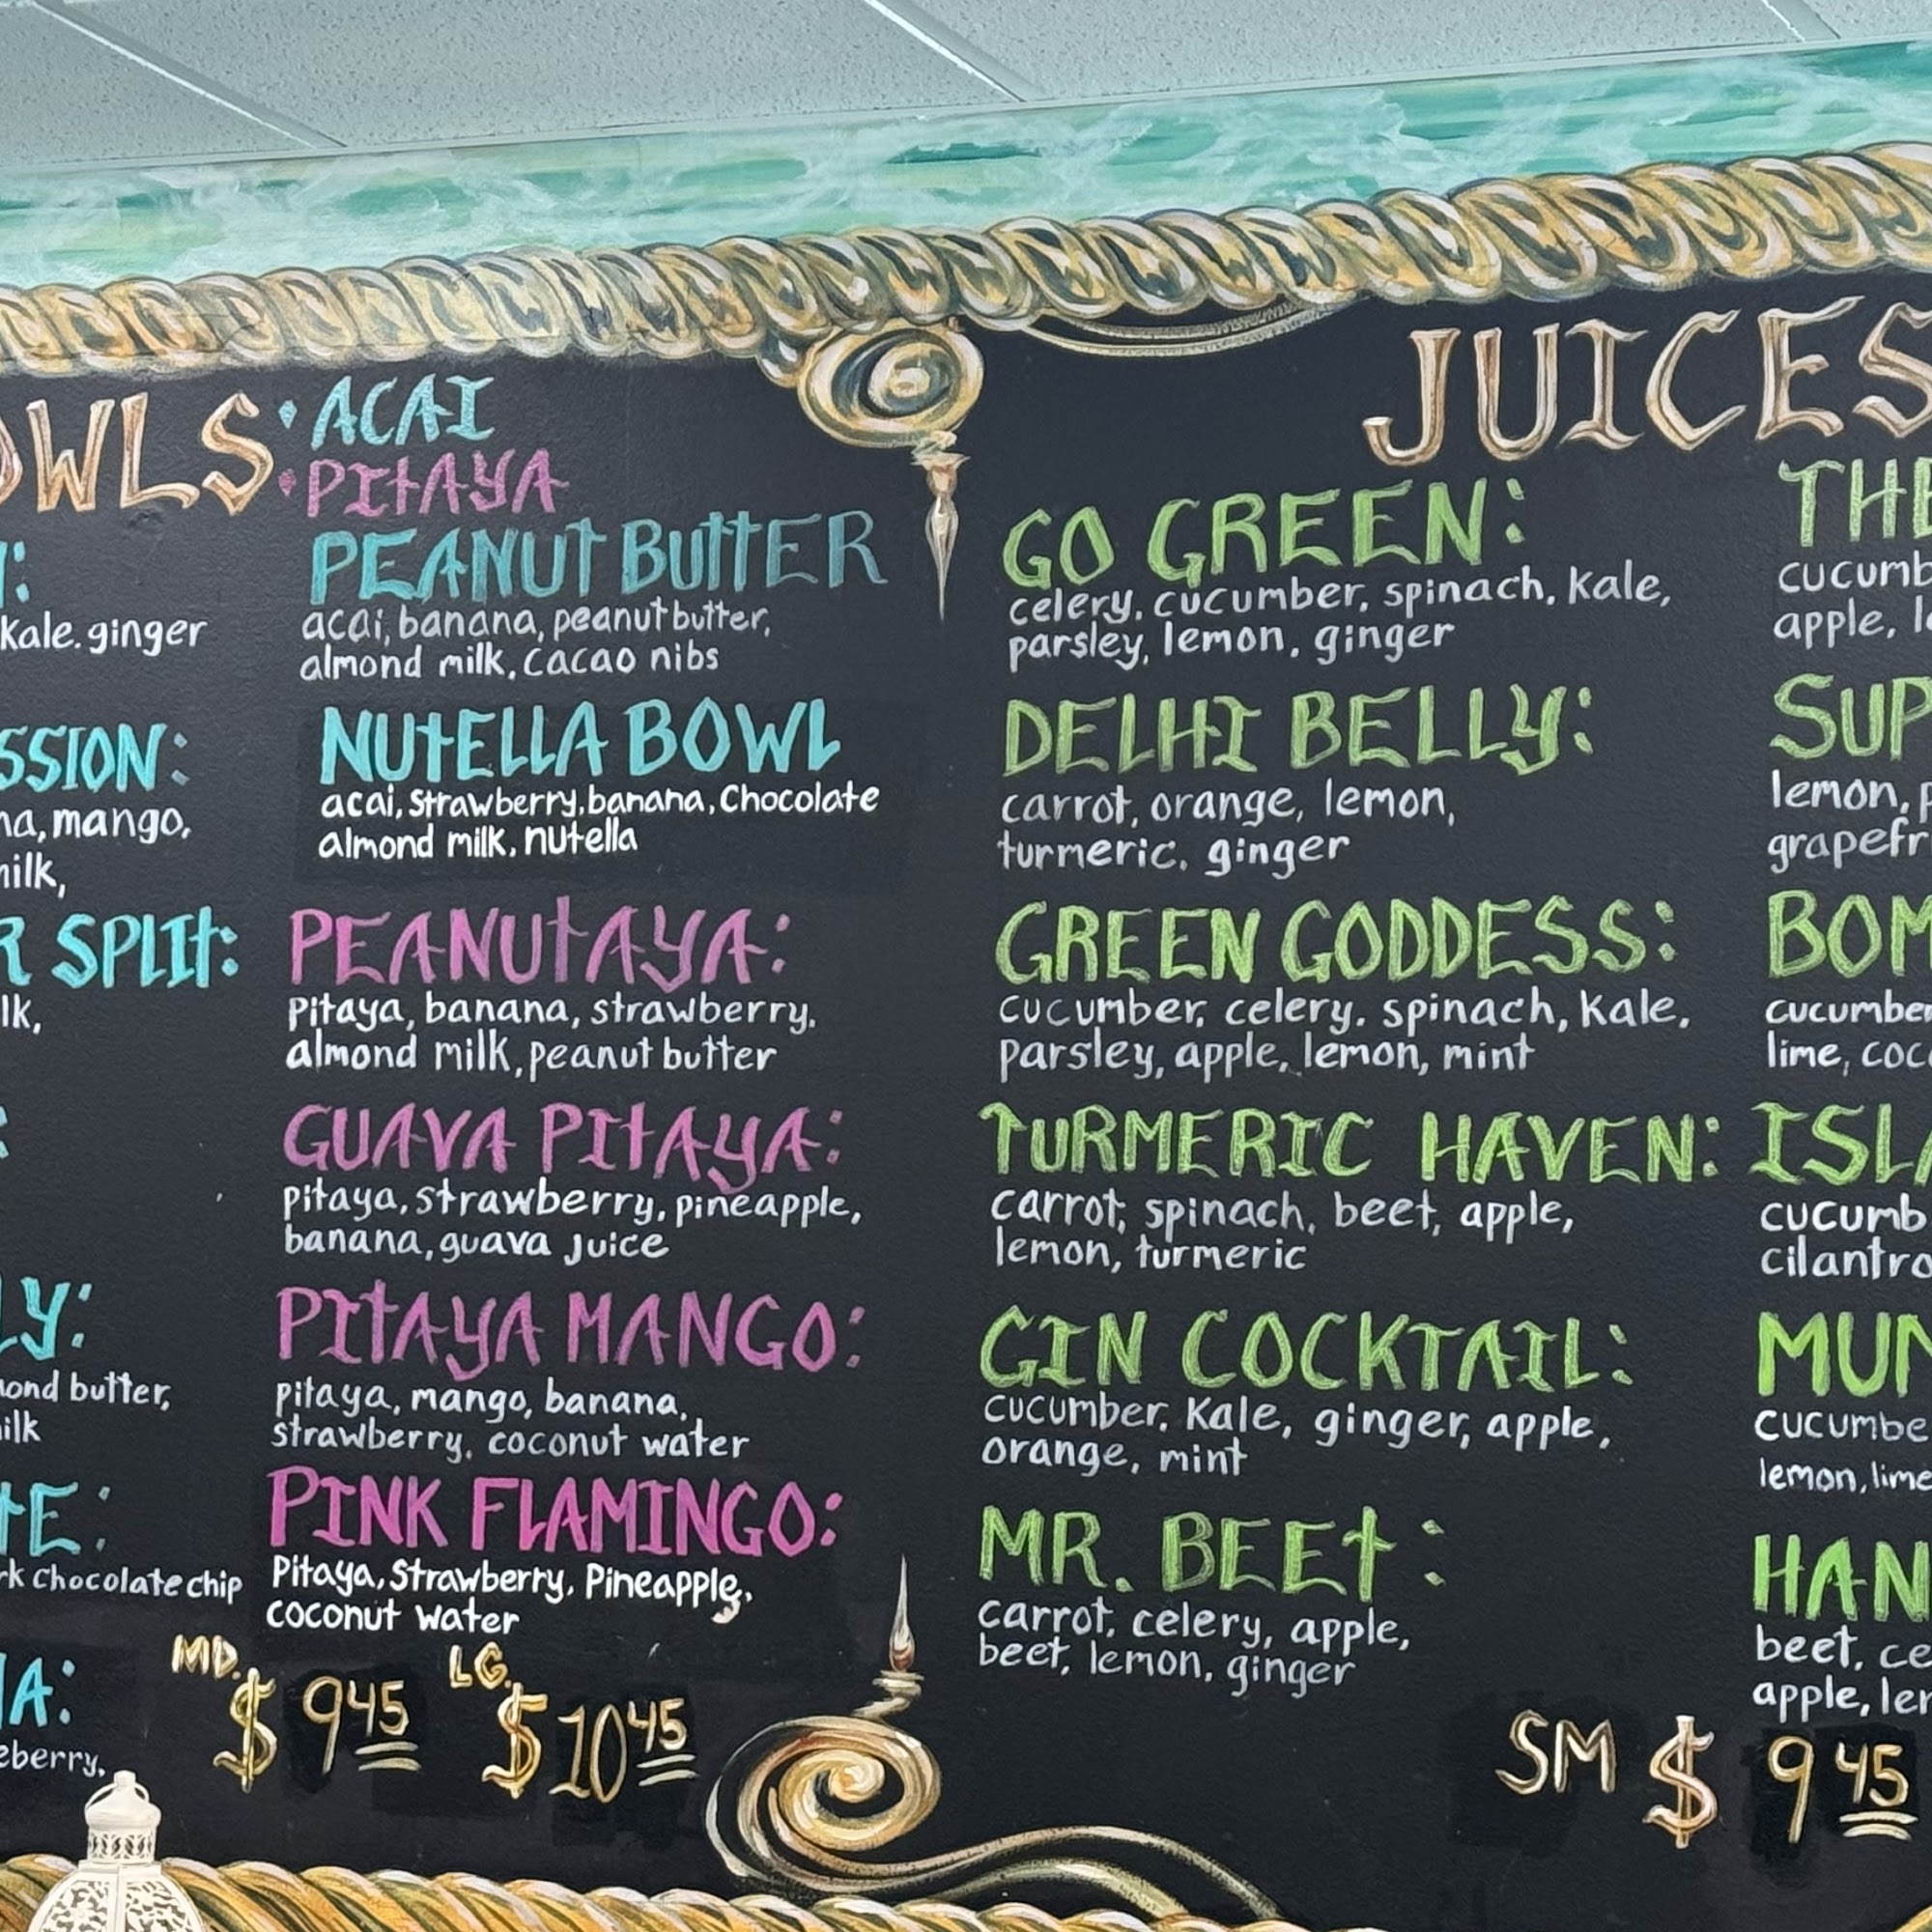 ACAI
PITAYA
kale. ginger
mango,
SPLIT:
butter,
Chocolate chip
MD. $ 9 45 LG. $ 10 45
PEANUT BUTTER
acai, banana, peanut butter,
almond milk, cacao nibs
NUTELLA BOWL
acai, Strawberry, banana, Chocolate
almond milk, nutella
PEANUTAYA:
Pitaya, banana, strawberry,
almond milk, peanut butter
GUAVA PITAYA:
pitaya, strawberry, pineapple,
banana, guava juice
PITAYA MANGO:
pitaya, mango, banana,
strawberry, coconut water
PINK FLAMINGO:
Pitaya, Strawberry, Pineapple,
coconut water
JUICES
GO GREEN:
celery, cucumber, spinach, kale,
parsley, lemon, ginger
DELHI BELLY:
carrot, orange, lemon,
turmeric, ginger
GREEN GODDESS:
cucumber, celery, spinach, kale,
parsley, apple, lemon, mint
TURMERIC HAVEN:
carrot, spinach, beet, apple,
lemon, turmeric
GIN COCKTAIL:
cucumber, Kale, ginger, apple,
orange, mint
MR. BEET:
carrot, celery, apple,
beet, lemon, ginger
apple,
lemon,
lime,
lemon, lime
beet,
apple,
SM $ 9 45